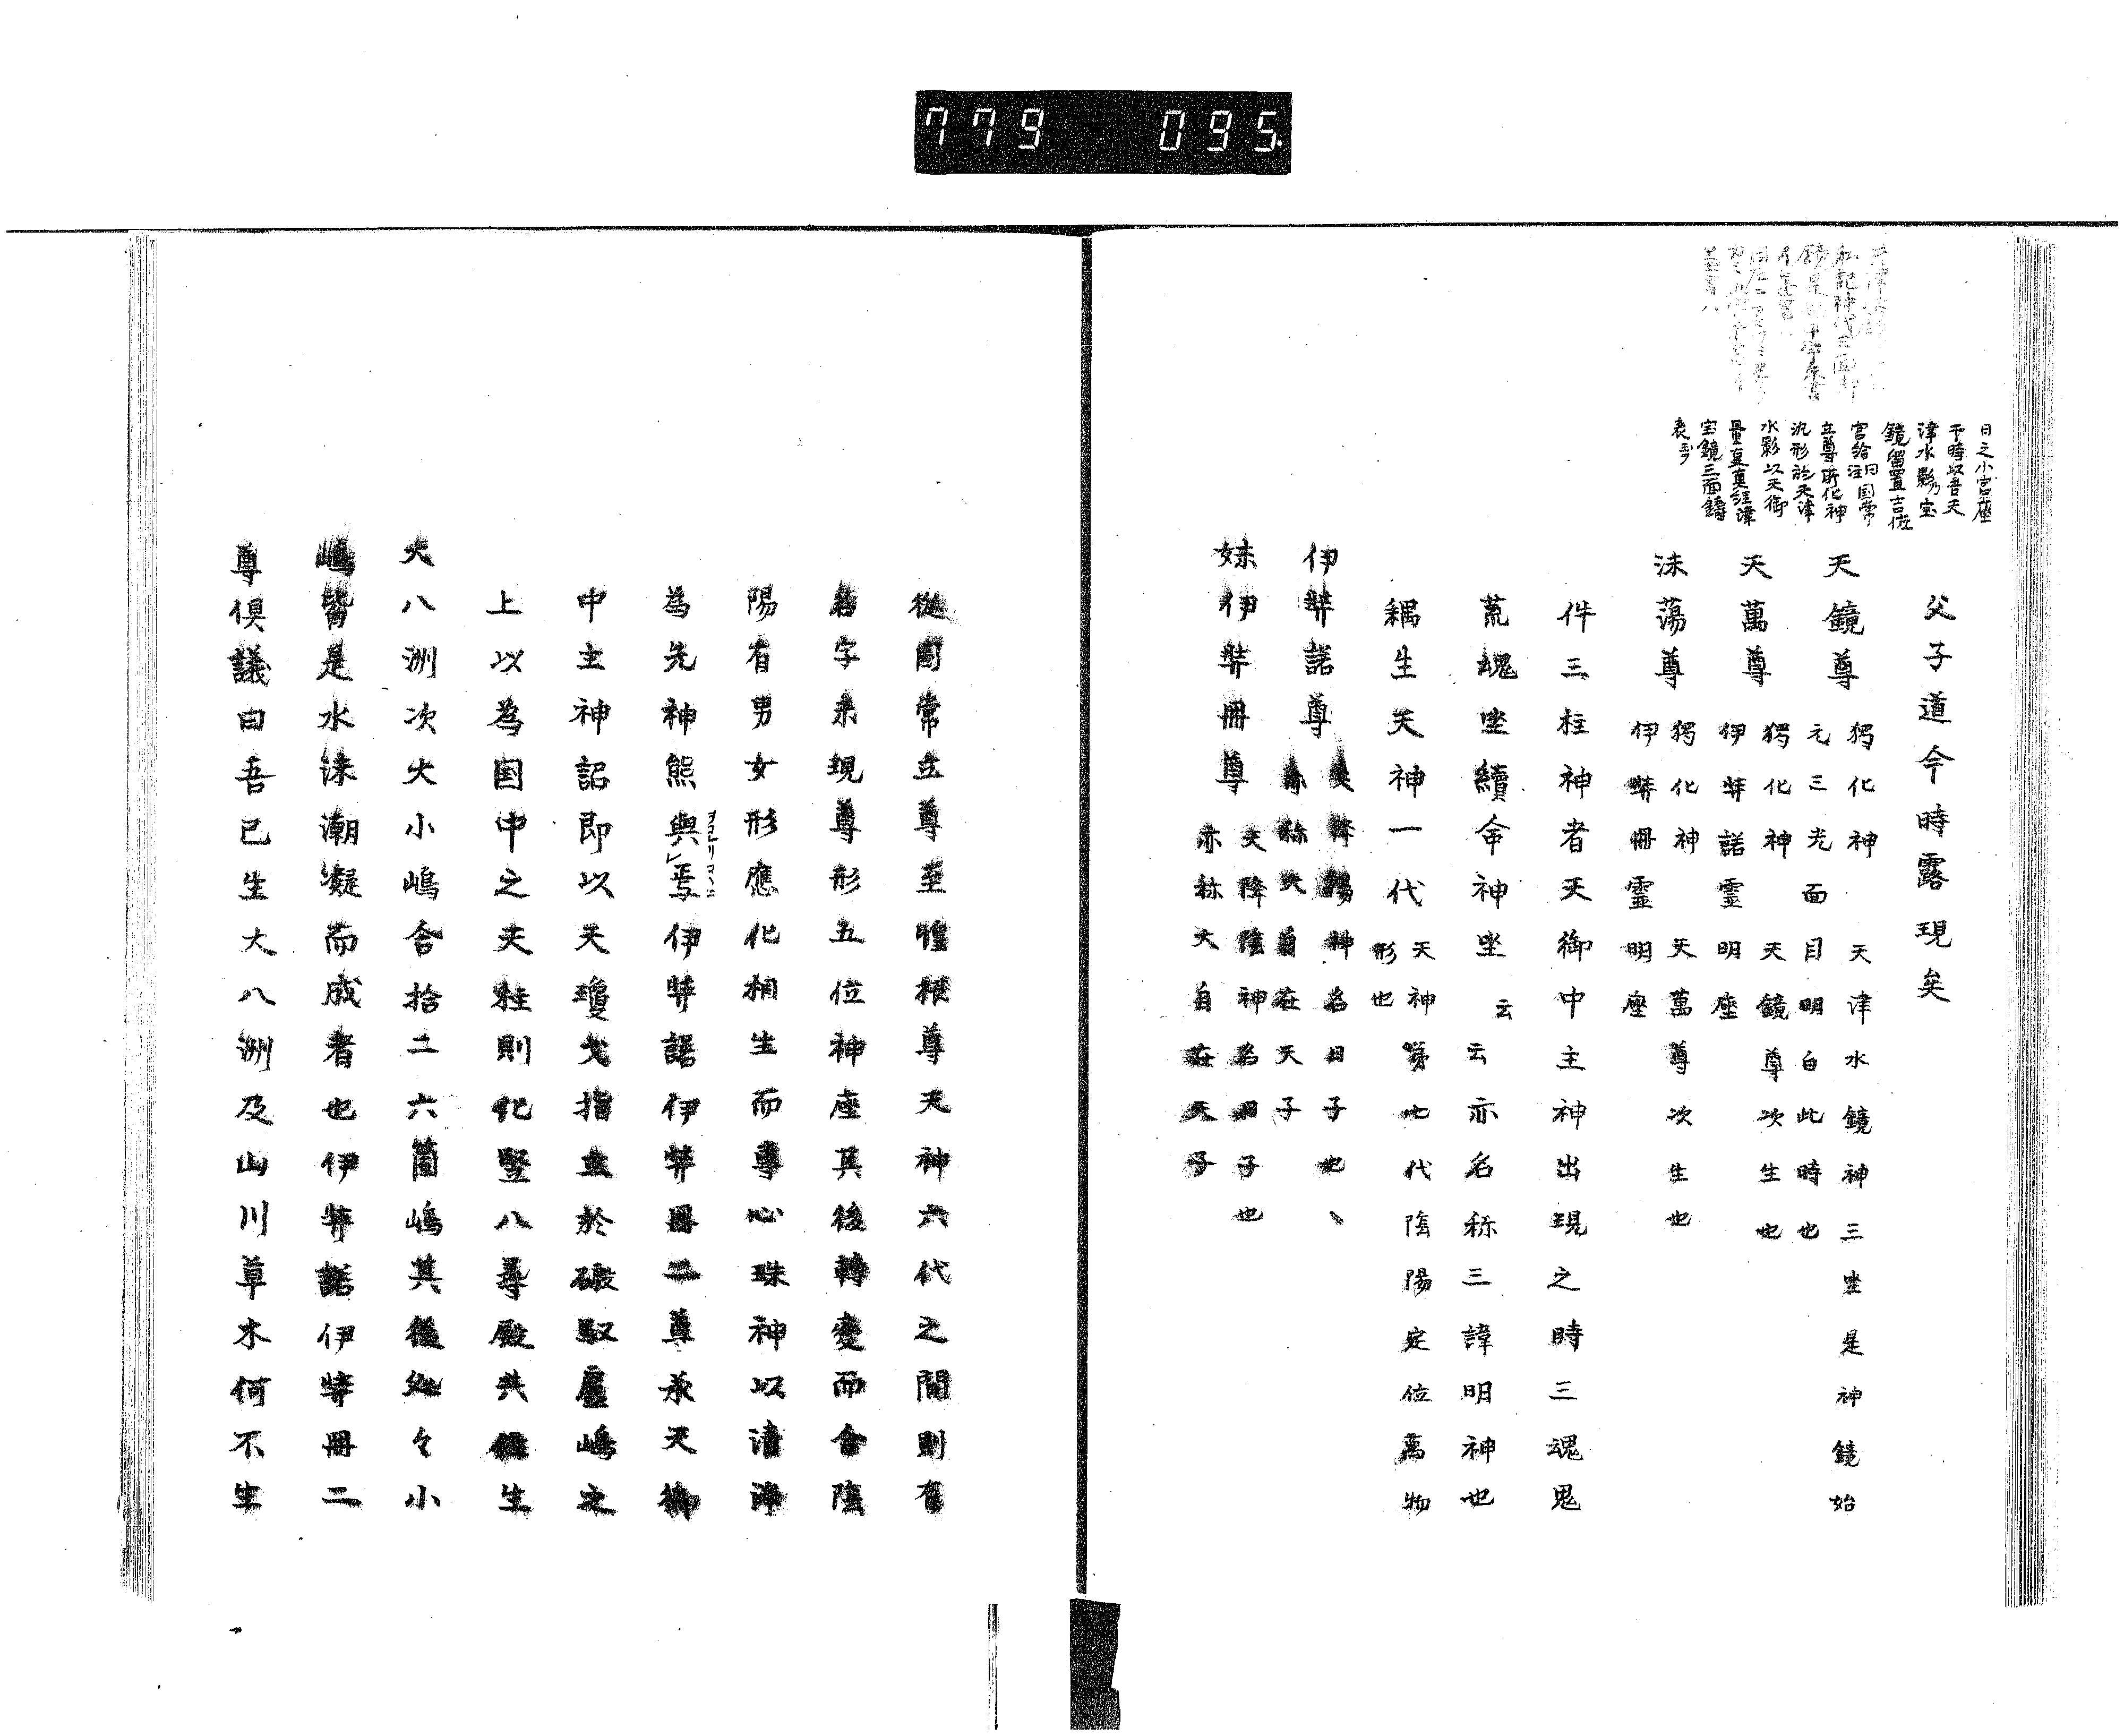 779 095
日之小宮座
于時以吾天
津水影乃宝
鏡留置吉佐
宮給注曰国常
立尊所化神
汎形於天津
水影以天御
量宝鏡三面鋳
表

父子道今時露現矣
天鏡尊
獨化神 天津水鏡神三坐是神鏡始
元三光面目明白此時也
天萬尊
獨化神 天鏡尊次生也
伊弉諾霊明座
沫蕩尊
獨化神 天萬尊次生也
伊弉冊霊明座
件三柱神者天御中主神出現之時三魂鬼
荒魂坐續命神坐云云亦名称三諱明神也
耦生天神一代
天神第七代陰陽定位萬物
形也
伊弉諾尊
天降陽神名曰子也
亦称大自在天子
妹伊弉冊尊
天降陰神名曰子也
亦称大自在天子
從國常立尊至惶根尊天神六代之間則有
名字未現尊形五位神座其後轉變而合陰
陽有男女形應化相生而專心珠神以清浄
為先神態與焉伊弉諾伊弉冊二尊承天御
中主神詔即以天瓊戈指立於磤馭廬嶋之
上以為国中之天柱則化竪八尋殿共 生
大八洲次大小嶋合拾二六箇嶋其後処々小
嶋皆是水沫潮凝而成者也伊弉諾伊弉冊二
尊倶議曰吾已生大八洲及山川草木何不生